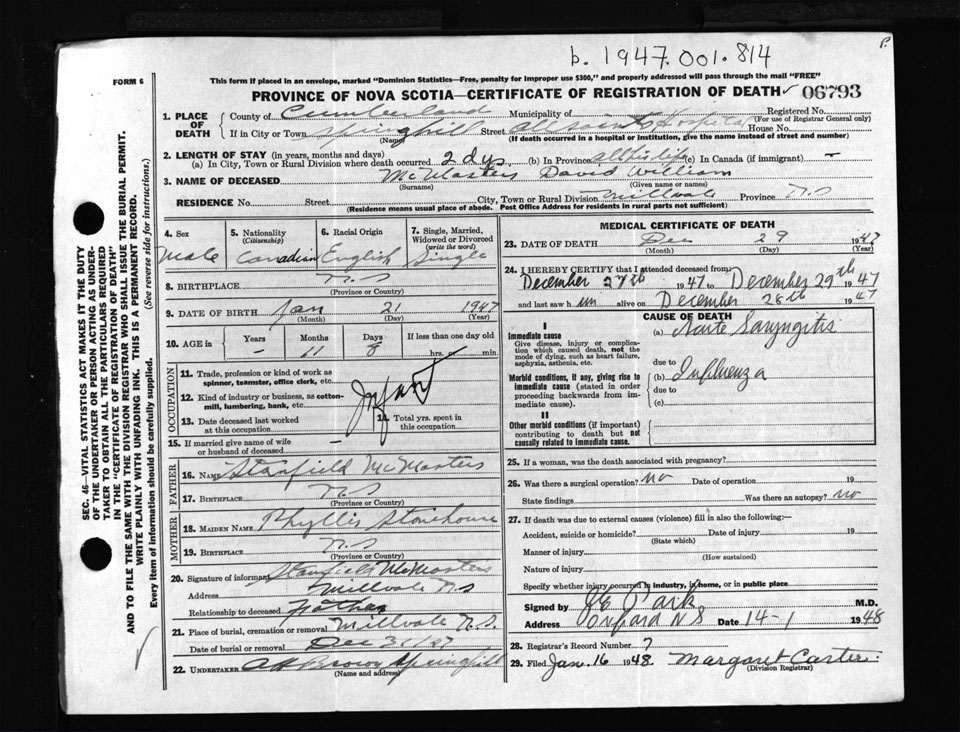 b. 1947.001.814
P.
FORM 6
This form if placed in an envelope, marked "Dominion Statistics—Free, penalty for improper use $300," and properly addressed will pass through the mail "FREE"
PROVINCE OF NOVA SCOTIA—CERTIFICATE OF REGISTRATION OF DEATH 06793
1. PLACE OF DEATH
County of Cumberland Municipality of Registered No.
(For use of Registrar General only)
If in City or Town Springhill Street All Saints Hospital House No.
(Name) (If death occurred in a hospital or institution, give the name instead of street and number)
2. LENGTH OF STAY (in years, months and days)
(a) In City, Town or Rural Division where death occurred 2 dys. (b) In Province all his life (c) In Canada (if immigrant) —
3. NAME OF DECEASED McMasters David William
(Surname) (Given name or names)
RESIDENCE No. Street City, Town or Rural Division Millvale Province N.S
(Residence means usual place of abode. Post Office Address for residents in rural parts not sufficient)
4. Sex Male
5. Nationality (Citizenship) Canadian
6. Racial Origin English
7. Single, Married, Widowed or Divorced (write the word) Single
8. BIRTHPLACE N.S
(Province or Country)
9. DATE OF BIRTH Jan 21 1947
(Month) (Day) (Year)
10. AGE IN Years — Months 11 Days 8 If less than one day old hrs. min.
OCCUPATION
11. Trade, profession or kind of work as spinner, teamster, office clerk, etc.
12. Kind of industry or business, as cotton-mill, lumbering, bank, etc.
Infant
13. Date deceased last worked at this occupation
14. Total yrs. spent in this occupation
15. If married give name of wife or husband of deceased —
FATHER
16. NAME Stanfield McMasters
17. BIRTHPLACE N.S
(Province or Country)
MOTHER
18. MAIDEN NAME Phyllis Stonehouse
19. BIRTHPLACE N.S
(Province or Country)
20. Signature of informant Stanfield McMasters
Address Millvale N.S
Relationship to deceased Father
21. Place of burial, cremation or removal Millvale N.S.
Date of burial or removal Dec 31/47
22. UNDERTAKER Brown Springhill
(Name and address)
MEDICAL CERTIFICATE OF DEATH
23. DATE OF DEATH Dec 29 1947
24. I HEREBY CERTIFY that I attended deceased from:
December 27th 1947 to December 29th 1947
and last saw him alive on December 28th 1947
CAUSE OF DEATH
I
Immediate cause
Give disease, injury or complication which caused death, not the mode of dying, such as heart failure, asphyxia, asthenia, etc.
(a) Acute Laryngitis
due to
Morbid conditions, if any, giving rise to immediate cause (stated in order proceeding backwards from immediate cause).
(b) Influenza
due to
(c)
II
Other morbid conditions (if important) contributing to death but not causally related to immediate cause.
25. If a woman, was the death associated with pregnancy?
26. Was there a surgical operation? No Date of operation 19
State findings Was there an autopsy? No
27. If death was due to external causes (violence) fill in also the following:—
Accident, suicide or homicide? Date of injury 19
(State which)
Manner of injury
(How sustained)
Nature of injury
Specify whether injury occurred in industry, in home, or in public place
Signed by Park M.D.
Address Oxford N S Date 14-1 1948
28. Registrar's Record Number 7
29. Filed Jan. 16 1948. Margaret Carter
(Division Registrar)
SEC. 46—VITAL STATISTICS ACT MAKES IT THE DUTY
OF THE UNDERTAKER OR PERSON ACTING AS UNDER-
TAKER TO OBTAIN ALL THE PARTICULARS REQUIRED
IN THE "CERTIFICATE OF REGISTRATION OF DEATH"
AND TO FILE THE SAME WITH THE DIVISION REGISTRAR WHO SHALL ISSUE THE BURIAL PERMIT.
WRITE PLAINLY WITH UNFADING INK. THIS IS A PERMANENT RECORD.
Every item of information should be carefully supplied. (See reverse side for instructions.)